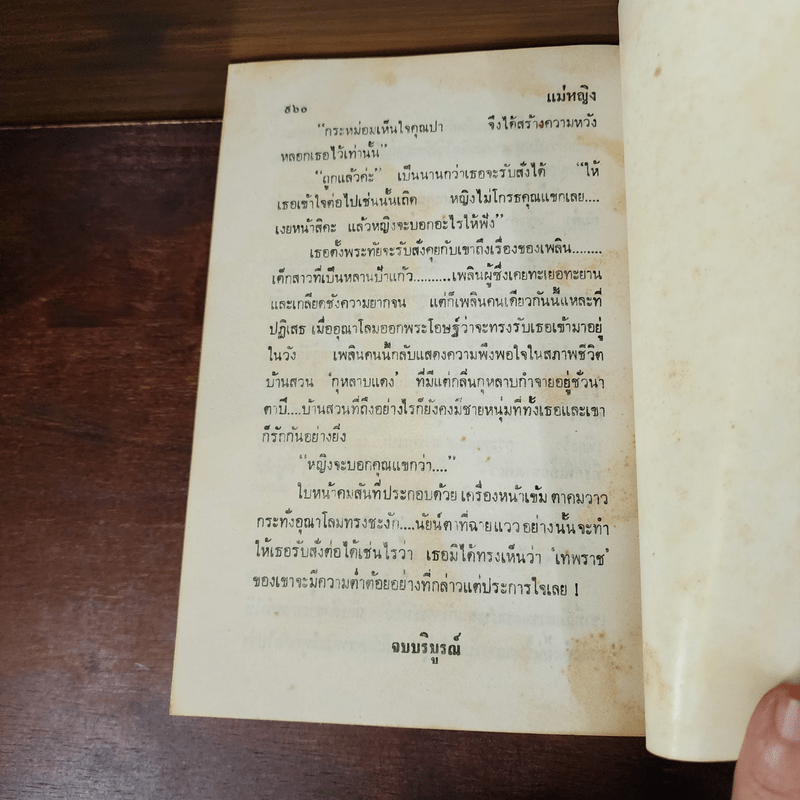 ๕๖๐
แม่หญิง
“กระหม่อมเห็นใจคุณปา จึงได้สร้างความหวัง
หลอกเธอไว้เท่านั้น”
“ถูกแล้วค่ะ” เป็นนานกว่าเธอจะรับสั่งได้ “ให้
เธอเข้าใจต่อไปเช่นนั้นเถิด หญิงไม่โกรธคุณแขกเลย....
เงยหน้าสิคะ แล้วหญิงจะบอกอะไรให้ฟัง”
เธอตั้งพระทัยจะรับสั่งคุยกับเขาถึงเรื่องของเพลิน........
เด็กสาวที่เป็นหลานป้าแก้ว..........เพลินผู้ซึ่งเคยทะเยอทะยาน
และเกลียดชังความยากจน แต่ก็เพลินคนเดียวกันนี้แหละที่
ปฏิเสธ เมื่ออุณาโลมออกพระโอษฐ์ว่าจะทรงรับเธอเข้ามาอยู่
ในวัง เพลินคนนี้กลับแสดงความพึงพอใจในสภาพชีวิต
บ้านสวน ‘กุหลาบแดง’ ที่มีแต่กลิ่นกุหลาบกำจายอยู่ชั่วนา
ตาปี....บ้านสวนที่ถึงอย่างไรก็ยังคงมีชายหนุ่มที่ทั้งเธอและเขา
ก็รักกันอย่างยิ่ง
“หญิงจะบอกคุณแขกว่า....”
ใบหน้าคมสันที่ประกอบด้วย เครื่องหน้าเข้ม ตาคมวาว
กระทั่งอุณาโลมทรงชะงัก....นัยน์ตาที่ฉายแวว อย่างนั้นจะทำ
ให้เธอรับสั่งต่อได้เช่นไรว่า เธอมิได้ทรงเห็นว่า ‘เทพราช’
ของเขาจะมีความต่ำต้อยอย่างที่กล่าวแต่ประการใจเลย !
จบบริบูรณ์